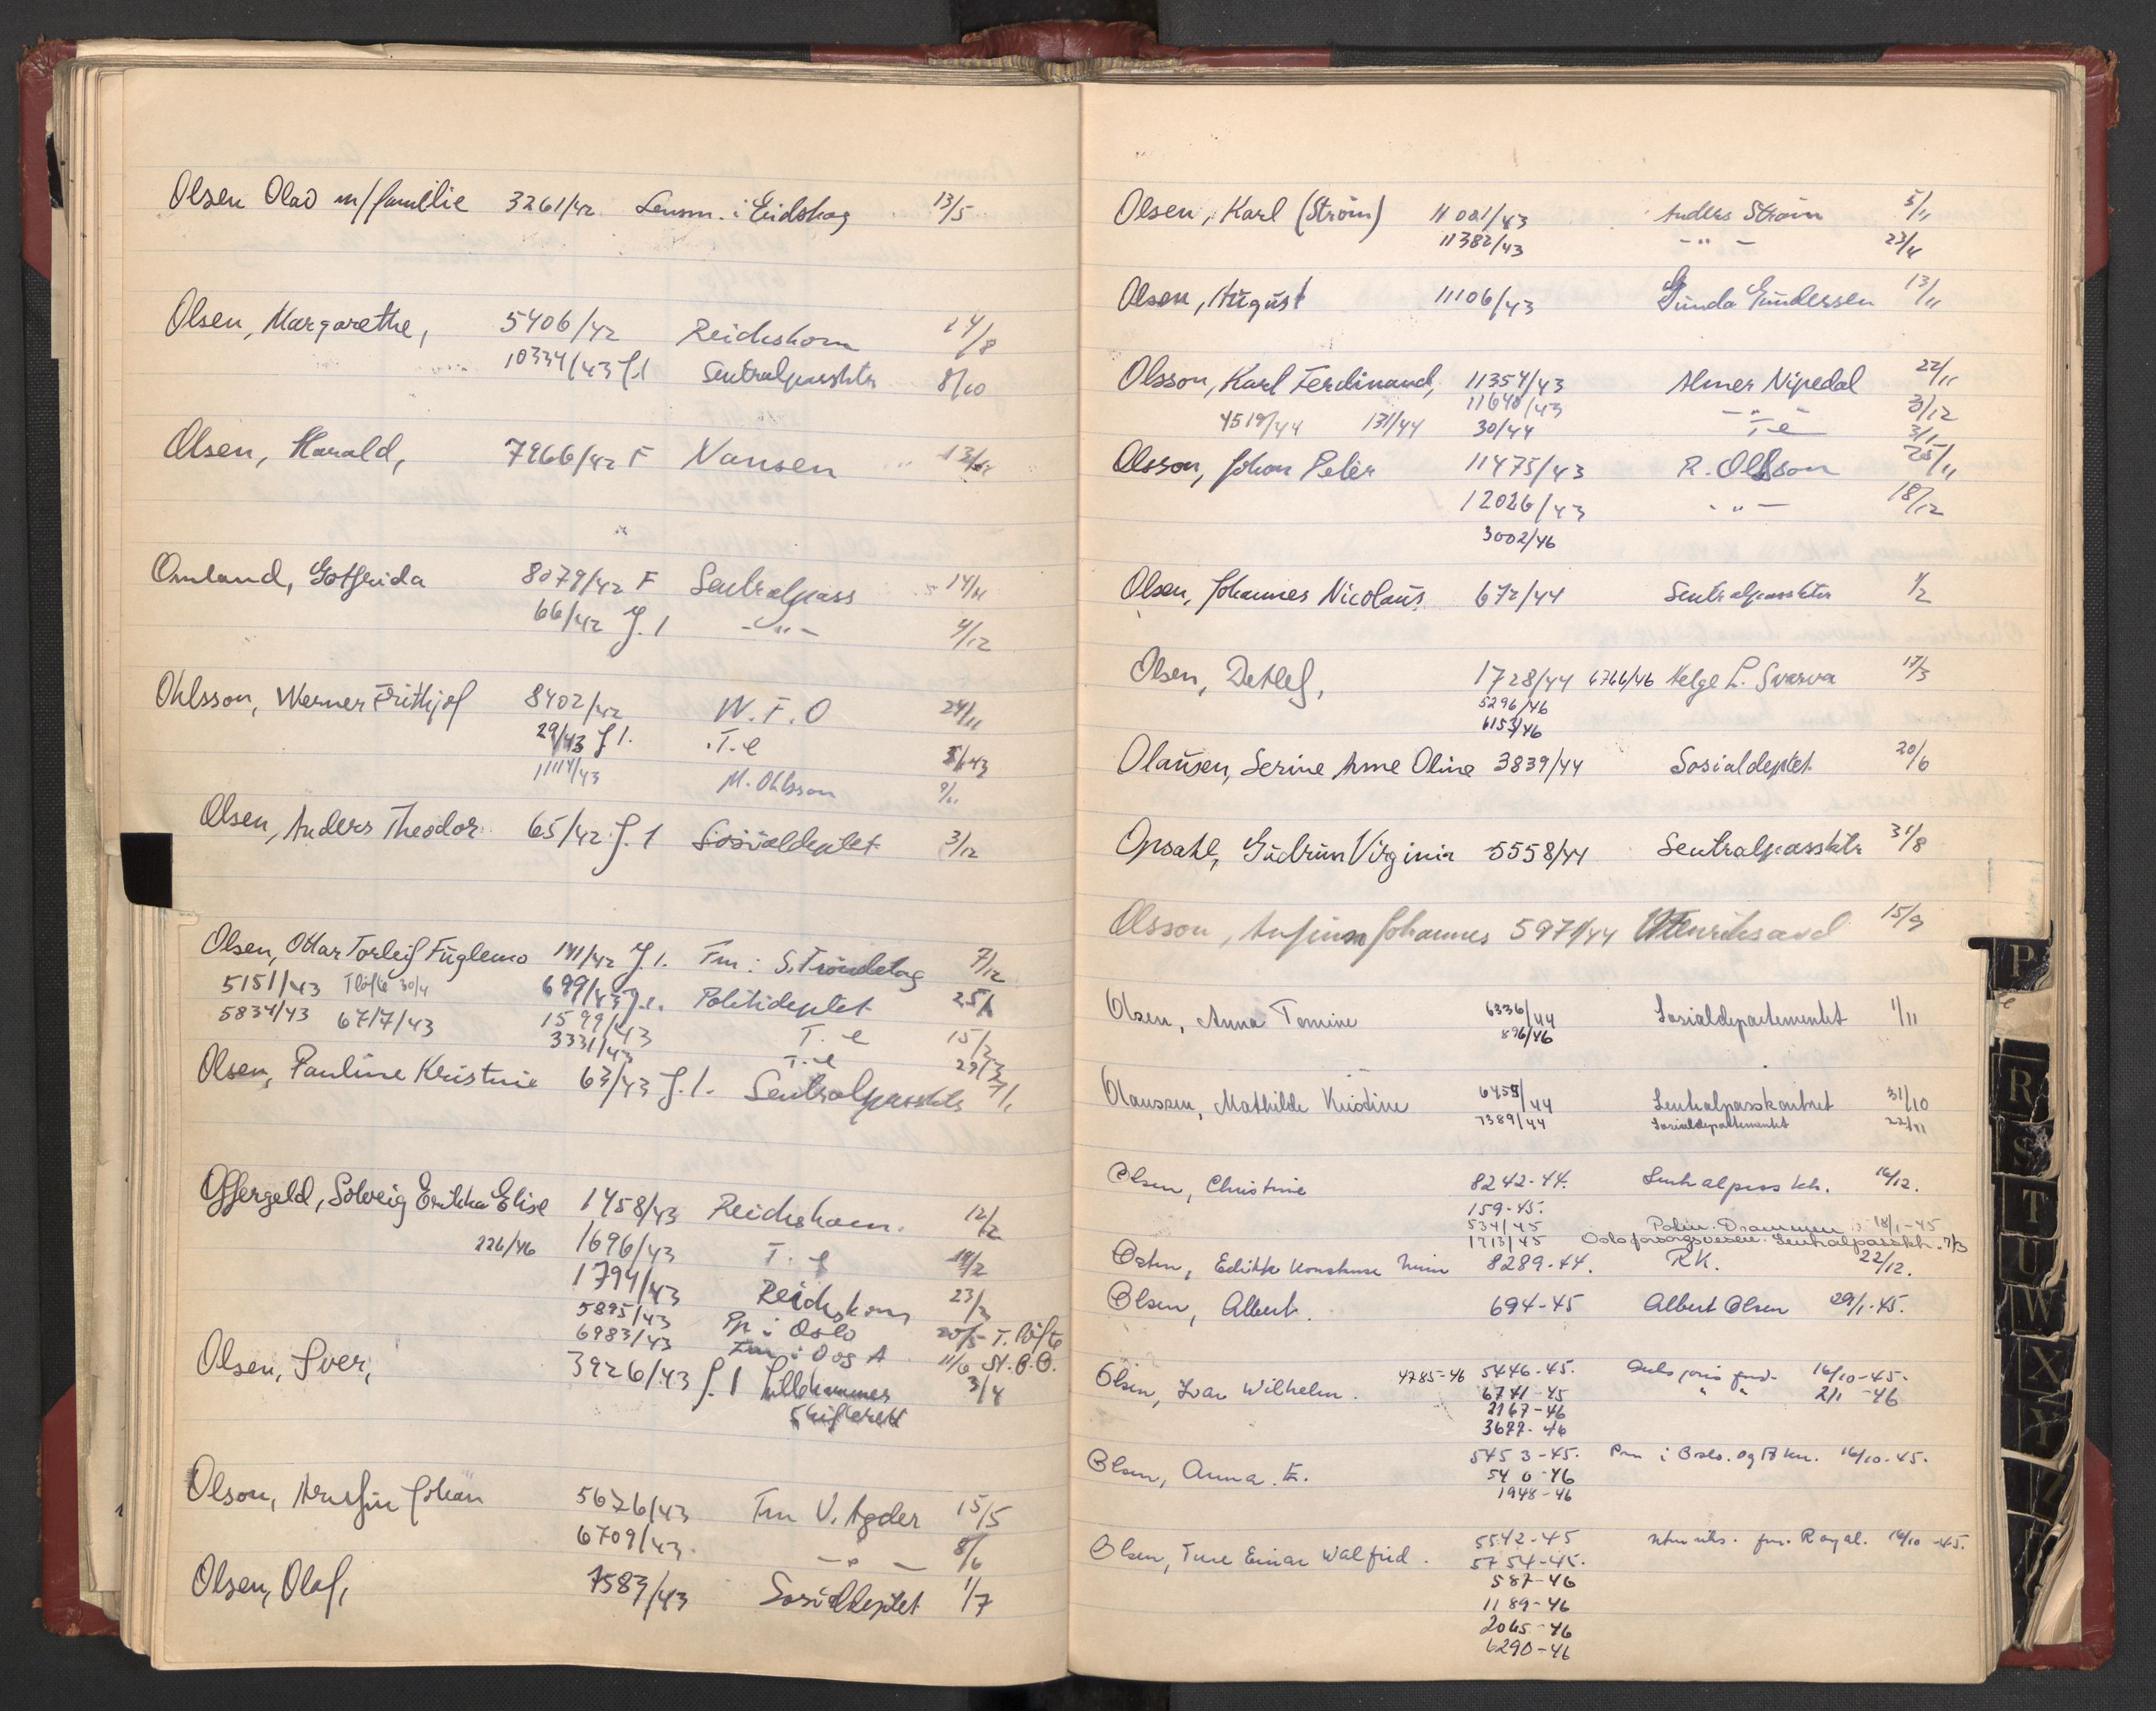 Olsen Olav m/familie 3261/42 Lensm. i Eidskog 13/5
Olsen, Margarethe, 5406/42 Reichskom 24/8
10334/43 J.1 Sentralpassktr 8/10
Olsen, Harald, 7966/42 F Nansen
Omland, Gotfrida 8079/42 F Sentralpass 14/11
66/42 J.1 -"- 4/12
Ohlsson, Werner Frithjof 8402/42 W.F.O 24/11
29/43 J1. T.e 5/1 43
11114/43 M. Ohlsson 9/11
Olsen, Anders Theodor 65/42 J.1 Sosialdeptet 3/12
Olsen, Ottar Torleif Fuglemo 141/42 J.1. Fm: S. Trøndelag 7/12
5151/43 Tløfte 30/4 699/43 J.1. Politideptet 25/1
5834/43 67/7/43 1599/43 T. e 15/2
3331/43 T.e 23/3
Olsen, Pauline Kristine 63/43 J.1. Sentralpassktr 7/1
Offergeld, Solveig Erikka Elise 1458/43 Reichskom. 12/2
226/46 1696/43 T. e 19/2
1794/43 Reichskom 23/2
5895/43 Pp i Oslo 20/5 T. Løfte
6983/43 Fm i O og A 11/6 St.B.O.
Olsen, Sver, 3926/43 J.1 Lillehammer 3/4
Skifterett
Olson, Arnfin Johan 5626/43 Fm V. Agder 15/5
6709/43. -"- 8/6
Olsen, Olaf, 7583/43 Sosialdeptet 1/7
Olsen, Karl (Strøm) 11001/43 Anders Strøm 5/11
11382/43 -"- 23/11
Olsen, August 11106/43 Gunda Gundersen 13/11
Olsson, Karl Ferdinand, 11354/43 Almer Nipedal 22/11
11640/43 -"- 3/12
4519/44 131/44 30/44 T.e 3/1
Olsson, Johan Peter 11475/43 R. Olsson 25/11
12026/43 -"- 18/12
3002/46
Olsen, Johannes Nicolaus 672/44 Sentralpassktr 1/2
Olsen, Detlef, 1728/44 6766/46 Helge L. Svarva 17/3
5296/46
6153/46
Olausen, Serine Anne Oline 3839/44 Sosialdeptet 20/6
Opsahl, Gudrun Virginia 5558/44 Sentralpassktr 31/8
Olsson, Anfinn Johannes 5971/44 Utenriksavd 15/9
Olsen, Anna Tomine 6336/44 Sosialdepartementet 1/11
896/46
Olaussen, Mathilde Kristine 6458/44 Sentralpasskontoret 31/10
7389/44 Sosialdepartementet 22/11
Olsen, Christine 8242-44. Sentralpass kt. 16/12.
159-45.
534/45 Polim. Drammen 18/1-45
1713/45 Osloforsorgsvesen. Sentralpassktr. 7/3
Osten, Edith Konstanse 8289-44. RK. 22/12.
Olsen, Albert. 694-45 Albert Olsen 29/1-45.
Olsen, Ivar Wilhelm. 4785-46 5446-45. 16/10-45.
6741-45 " " 2/1-46
2167-46
3677-46
Olsen, Anna. E. 5453-45. Pm i Oslo. og B km. 16/10-45.
540-46
1948-46
Olsen, Ture Einar Walfrid. 5542-45 Utenriks. fm. Royal. 16/10-45.
5754-45.
587-46
1189-46
2065-46
6290-46
P
R
S
T
U
W
X
Y